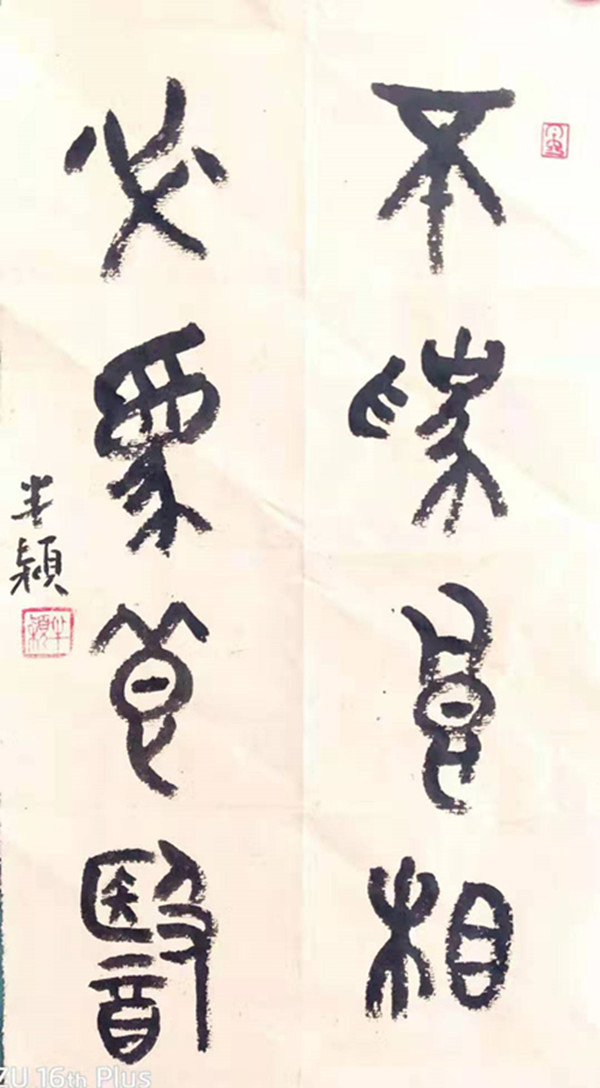 不為良相
必為良醫
半穎
半穎
ZU 16th Plus